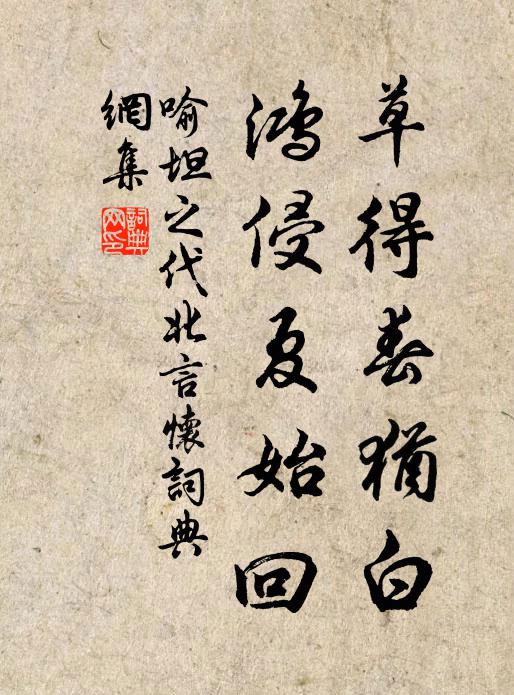 草得春猶白
鴻侵夏始回
喻坦之代北言懷詞典
網集
詞典
网印